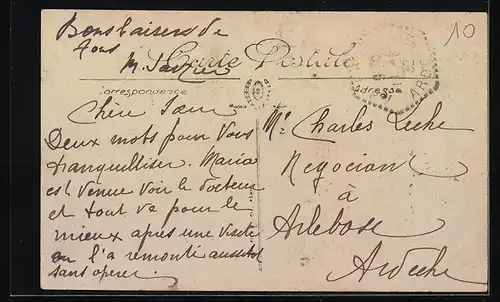 Bons baisers de
tous
Carte Postale
M.
Correspondance
Adresse
ARD
10
Chère
Deux mots pour vous
tranquilliser. Maria
est venue voir le docteur
et tout va pour le
mieux après une visite
on l'a remonté aussitot
sans operer.
Mr Charles
Negociant
à
Arlebosc
Ardeche